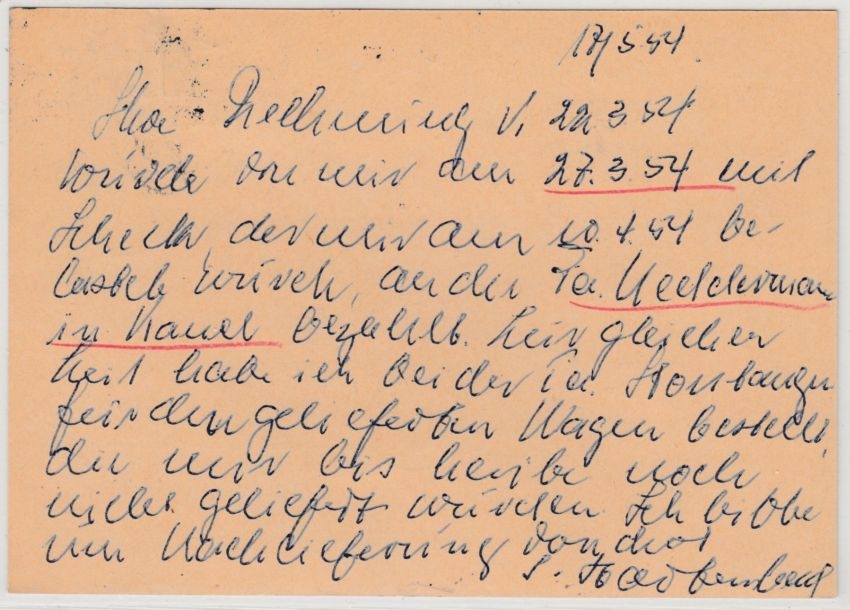 17/5 54.
Ihre Rechnung v. 22.3.54
wurde von mir am 27.3.54 mit
Scheck, der mir am 10.4.54 be-
lastet wurde, an die Fa. Neckermann
in bezahlt. Zur gleichen
Zeit habe ich bei der Fa.
für den gelieferten Wagen bestellt,
die mir bis heute noch
nicht geliefert wurden. Ich bitte
um Nachlieferung